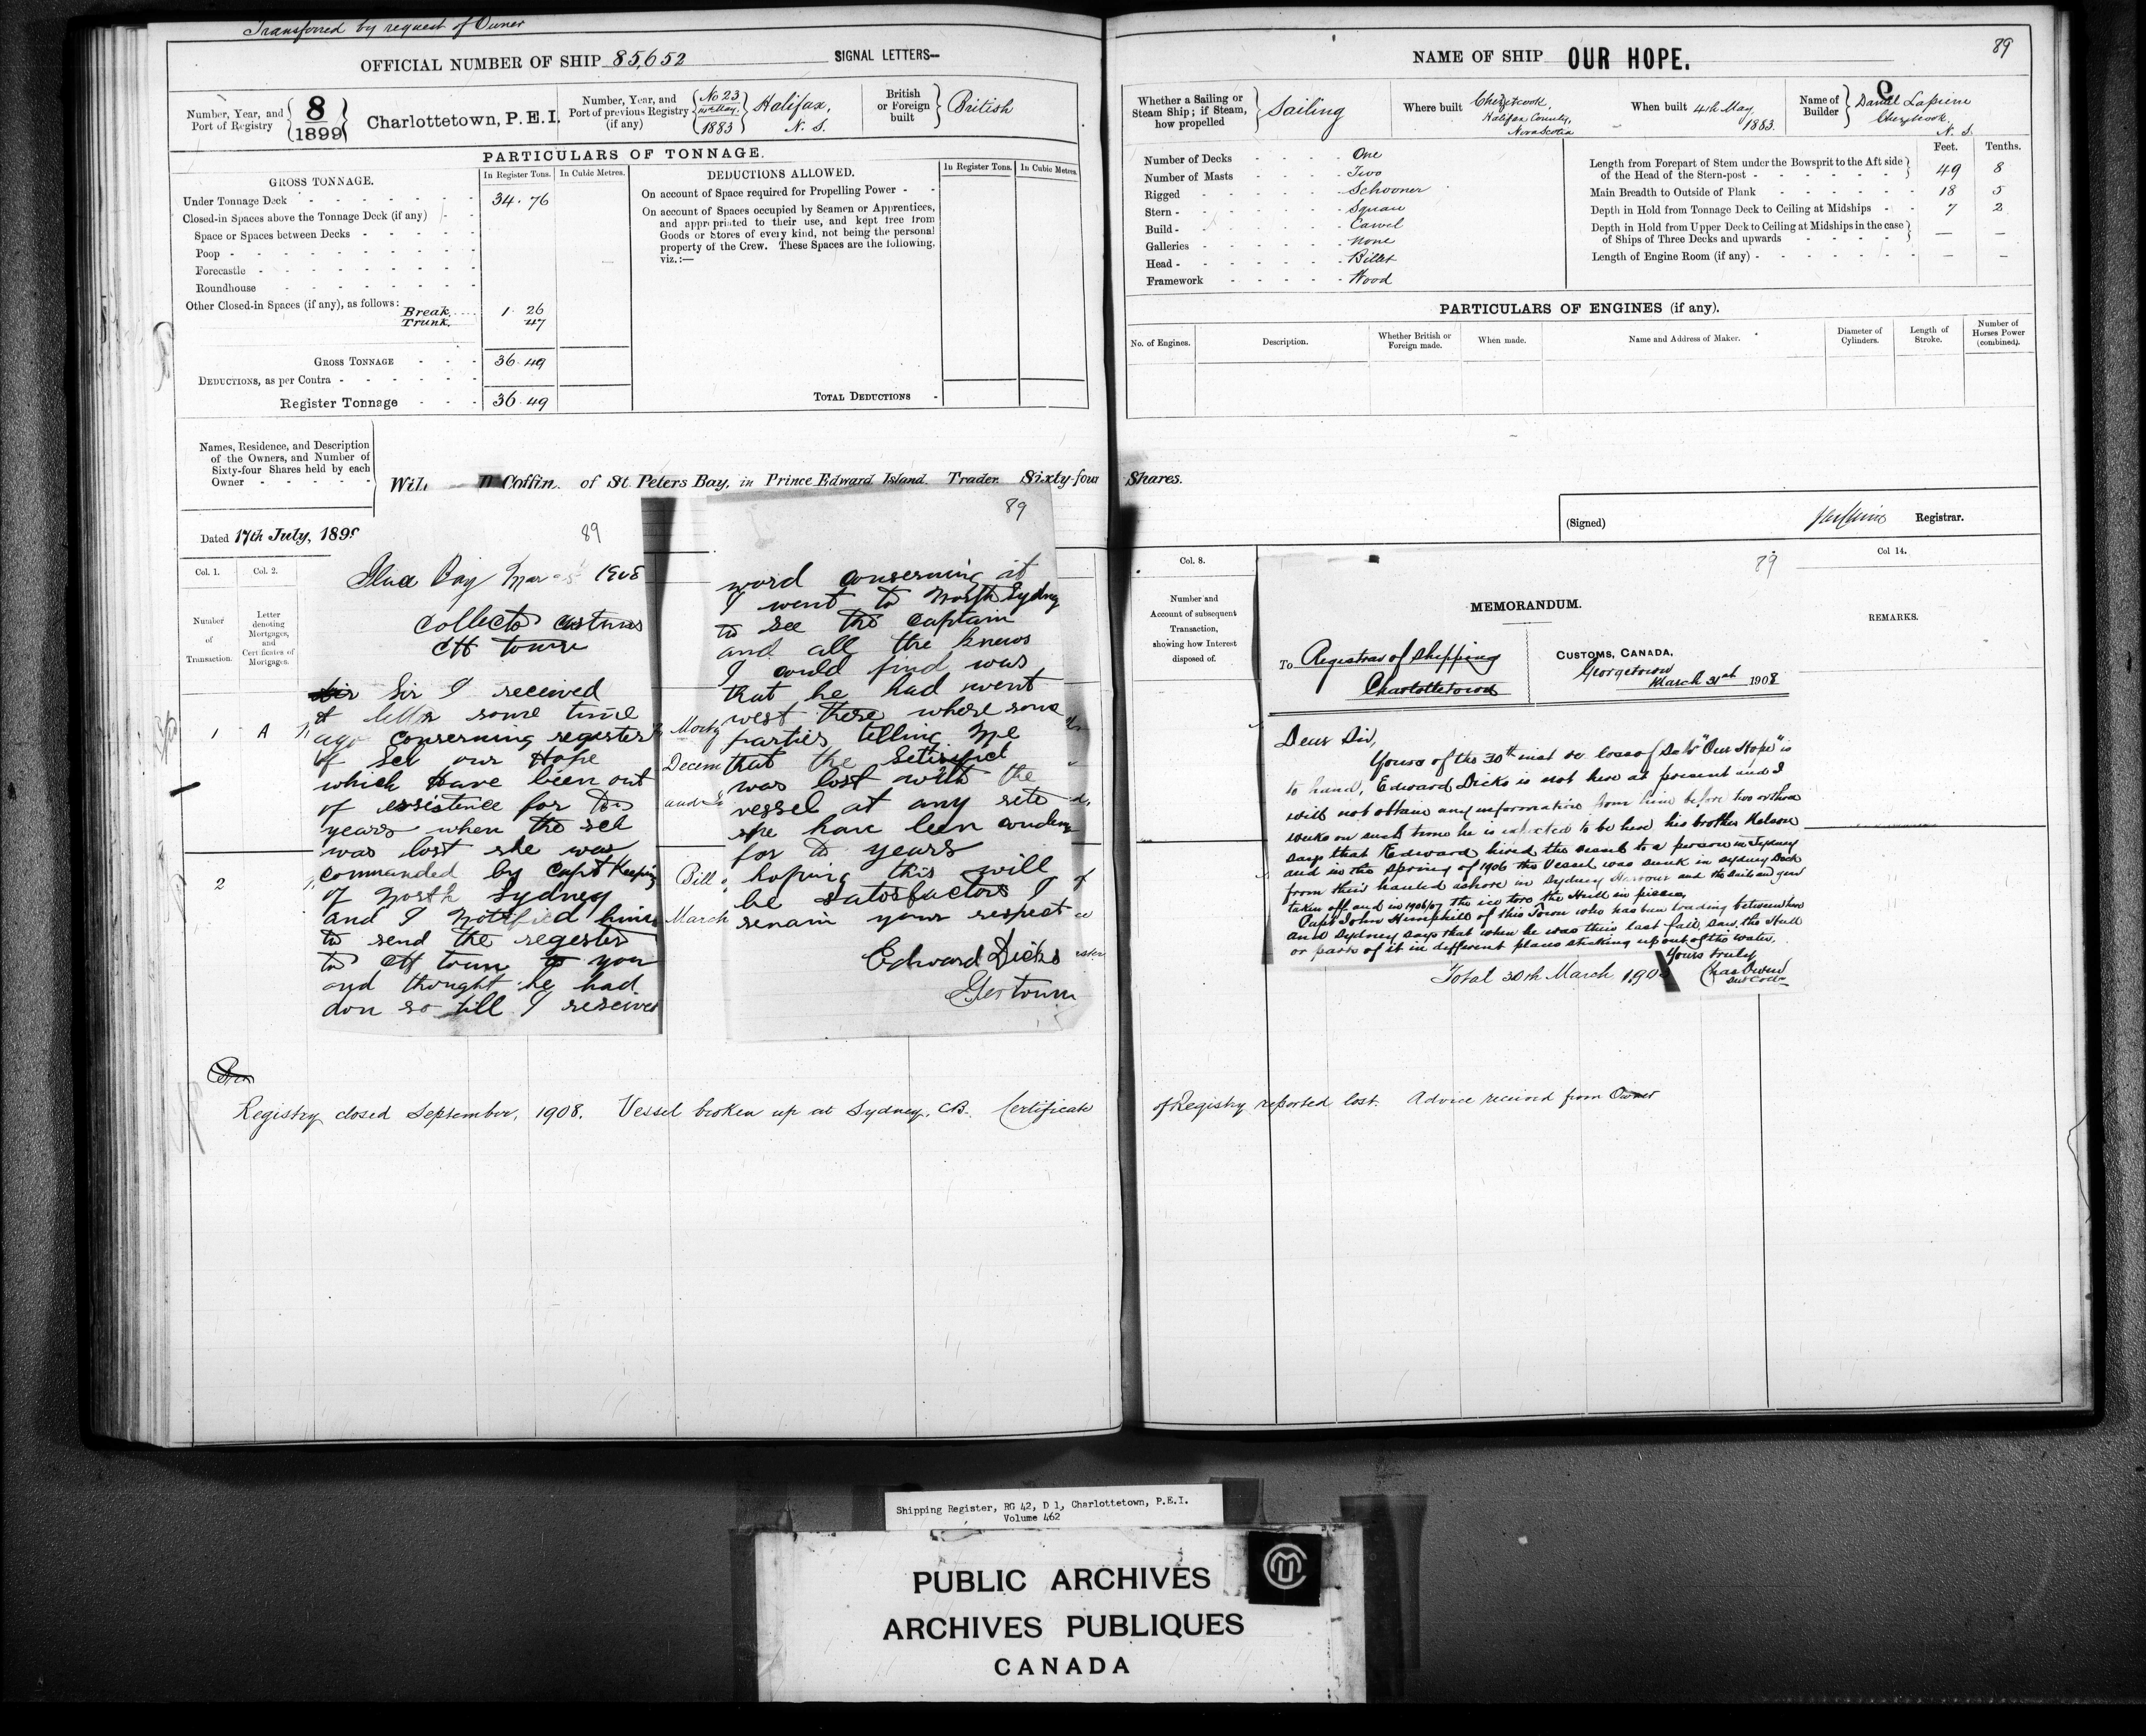 Transferred by request of Owner
OFFICIAL NUMBER OF SHIP 85,652
SIGNAL LETTERS—
Number, Year, and
Port of Registry
8
1899
Charlottetown, P.E.I.
Number, Year, and
Port of previous Registry
(if any)
No 23
1883
Halifax,
N. S.
British
or Foreign
built
British
PARTICULARS OF TONNAGE.
GROSS TONNAGE.
In Register Tons.
In Cubic Metres.
Under Tonnage Deck 34.76
Closed-in Spaces above the Tonnage Deck (if any)
Space or Spaces between Decks
Poop
Forecastle
Roundhouse
Other Closed-in Spaces (if any), as follows:
Break. 1.26
Trunk. 47
GROSS TONNAGE 36.49
DEDUCTIONS, as per Contra
Register Tonnage 36.49
DEDUCTIONS ALLOWED.
In Register Tons.
In Cubic Metres.
On account of Space required for Propelling Power
On account of Spaces occupied by Seamen or Apprentices,
and appr priated to their use, and kept free from
Goods or Stores of every kind, not being the personal
property of the Crew. These Spaces are the following,
viz.:—
TOTAL DEDUCTIONS
Names, Residence, and Description
of the Owners, and Number of
Sixty-four Shares held by each
Owner
Coffin of St. Peters Bay, in Prince Edward Island. Trader Sixty-four
Dated 17th July, 1899
Col. 1.
Col. 2.
Number
of
Transaction.
Letter
denoting
Mortgages,
and
Cert ficates of
Mortgages.
1 A
2
89
Bay Mar 1908
Collector Customs
CH town
Sir I received
A letter some time
ago conserning register
of Sch our Hope
which have been out
of exsistence for two
years when the sch
was lost she was
commanded by Capt Keeping
of North Sydney
and I Nottified him
to send the regester
to CH town to you
and thought he had
don so till I reseived
Mortg
Decem
and
Bill
March
89
word conserning it
I went to North Sydney
to see the captain
and all the knews
I could find was
that he had went
west there where some
parties telling me
that the
was lost with the
vessel at any rete
she have been
for to years
hoping this will
be satosfactors I
remain your respect
Edward Dicks
Getown
Registry closed September, 1908. Vessel broken up at Sydney, C.B. Certificate
NAME OF SHIP OUR HOPE.
89
Whether a Sailing or
Steam Ship; if Steam,
how propelled
Sailing
Where built
Chezetcook,
Halifax County,
Nova Scotia
When built 4th May,
1883.
Name of
Builder
Daniel Lapierre
Chezetcook
N. S.
Number of Decks One
Number of Masts Two
Rigged Schooner
Stern Square
Build Carvel
Galleries None
Head Billet
Framework Wood
Feet. Tenths.
Length from Forepart of Stem under the Bowsprit to the Aft side
of the Head of the Stern-post 49 8
Main Breadth to Outside of Plank 18 5
Depth in Hold from Tonnage Deck to Ceiling at Midships 7 2
Depth in Hold from Upper Deck to Ceiling at Midships in the case
of Ships of Three Decks and upwards — —
Length of Engine Room (if any) — —
PARTICULARS OF ENGINES (if any).
No. of Engines.
Description.
Whether British or
Foreign made.
When made.
Name and Address of Maker.
Diameter of
Cylinders.
Length of
Stroke.
Number of
Horses Power
(combined).
Shares.
(Signed)
Registrar.
Col. 8.
Number and
Account of subsequent
Transaction,
showing how Interest
disposed of.
Col 14.
REMARKS.
89
MEMORANDUM.
To Registrar of Shipping
Charlottetown
CUSTOMS, CANADA,
Georgetown
March 31st 1908
Dear Sir,
Yours of the 30th inst re loss of Sch "Our Hope" is
to hand, Edward Dicks is not here at present and I
will not obtain any information from him before two or three
weeks on such time he is expected to be here his brother Nelson
says that Edward hired the vessel to a person in Sydney
and in the Spring of 1906 the Vessel was sunk in Sydney Dock
from their hauled ashore in Sydney Harbour and the sails and gear
taken off and in 1906/07 the ice tore the Hull in pieces,
Capt John Hemphill of this Town who has been trading between here
and Sydney says that when he was their last fall, saw the Hull
or parts of it in different places sticking up out of the water,
Yours truly
Chas Owen
Sub Coll
Total 30th March 190
of Registry reported lost. Advice received from Owner
Shipping Register, RG 42, D 1, Charlottetown, P.E.I.
Volume 462
PUBLIC ARCHIVES
ARCHIVES PUBLIQUES
CANADA